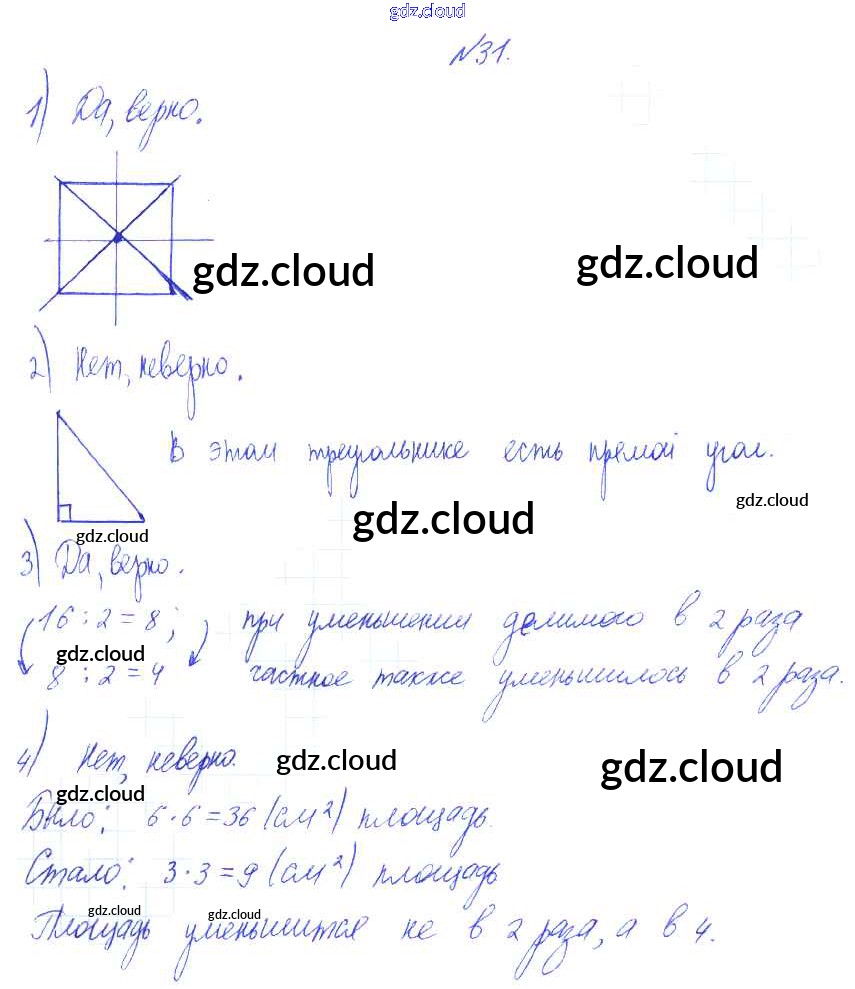 gdz.cloud
№31.
1) Да, верно.
gdz.cloud gdz.cloud
2) Нет, неверно.
В этом треугольнике есть прямой угол.
gdz.cloud
gdz.cloud
gdz.cloud
3) Да, верно.
16 : 2 = 8; при уменьшении делимого в 2 раза
gdz.cloud
8 : 2 = 4 частное также уменьшилось в 2 раза.
4) Нет, неверно.
gdz.cloud
gdz.cloud
gdz.cloud
Было: 6·6=36 (см²) площадь.
Стало: 3·3=9 (см²) площадь
gdz.cloud gdz.cloud
Площадь уменьшится не в 2 раза, а в 4.